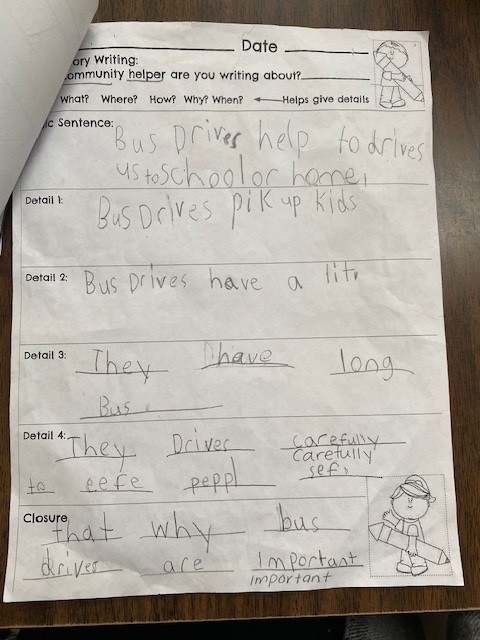 Date
ory Writing:
ommunity helper are you writing about?
What? Where? How? Why? When? Helps give details
ic Sentence:
Bus Drives help to drives
us to school or home,
Detail 1:
Bus Drives pik up kids
Detail 2:
Bus Drives have a
Detail 3:
They have long
Bus
Detail 4:
They Driver carefully
carefully
to eefe peppl sef,
Closure
that why bus
driver are Important
important